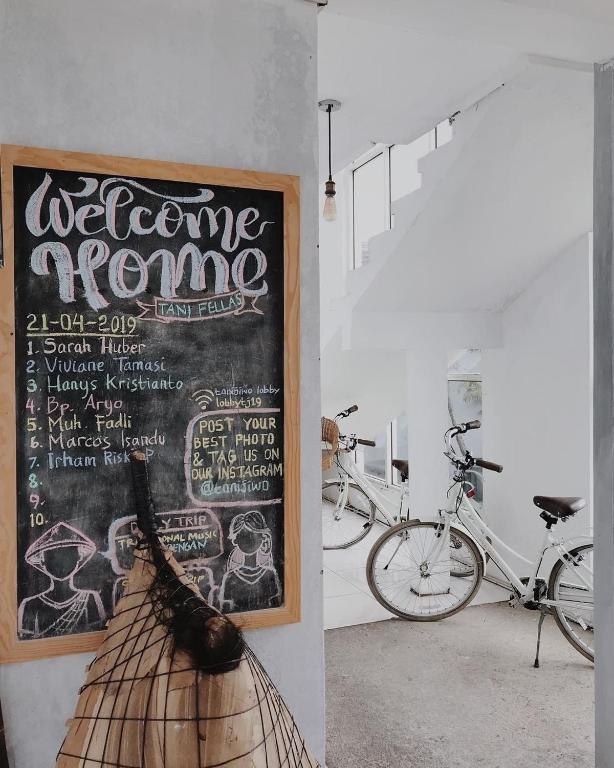 Welcome
Home
TANI FELLAS
21-04-2019
1. Sarah Huber
2. Viviane Tamasi
3. Hanys Kristianto
4. Bp. Aryo
5. Muh. Fadli
6. Marcos Isandu
7. Irham
8.
9.
10.
lobby
lobbytj19
POST YOUR
BEST PHOTO
& TAG US ON
OUR INSTAGRAM
@tanijiwo
TRIP
MUSIC
DENGAN